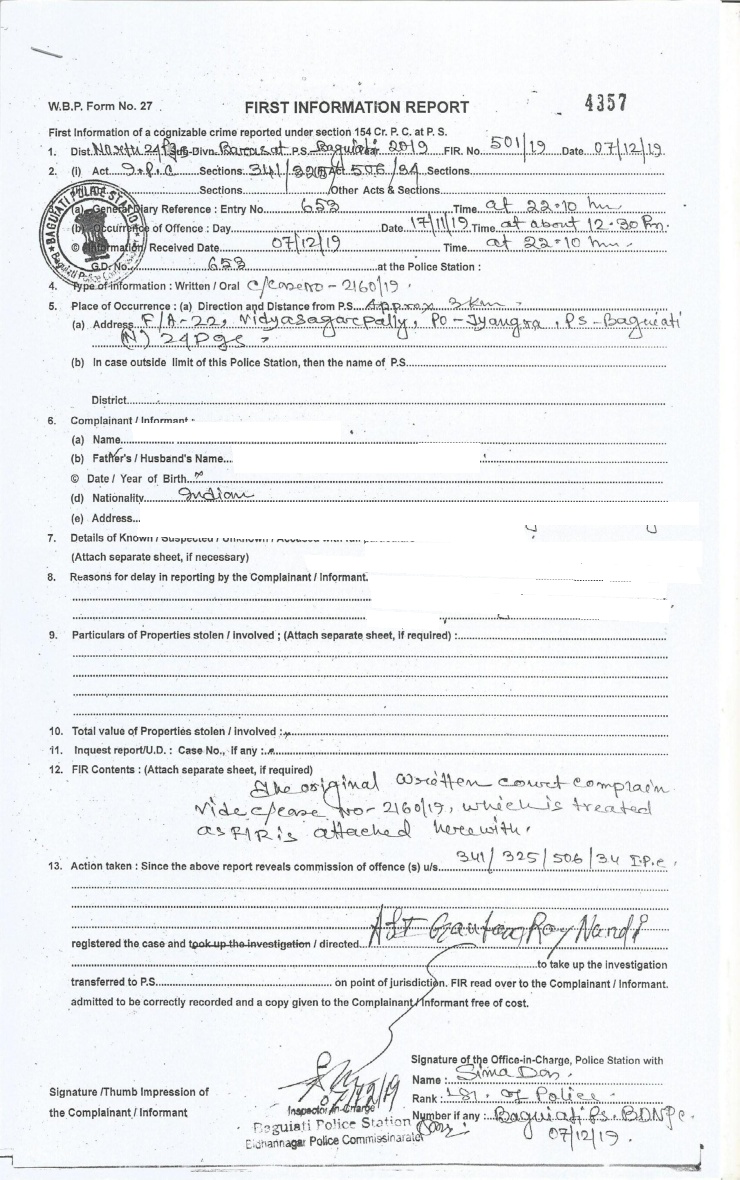 4357
W.B.P. Form No. 27
FIRST INFORMATION REPORT
First Information of a cognizable crime reported under section 154 Cr. P. C. at P. S.
1. Dist. North 24 Pgs Sub-Divn. Barasat P.S. Baguiati 2019 FIR. No. 501/19 Date 07/12/19
2. (I) Act I.P.C Sections 341/325/506/34 Sections
Sections /Other Acts & Sections
(a) General Diary Reference : Entry No. 653 Time at 22:10 hrs
(b) Occurrence of Offence : Day Date 17/11/19 Time at about 12-30 Pm.
© Information / Received Date 07/12/19 Time at 22-10 hrs
G.D. No. 653 at the Police Station :
BAGUIATI POLICE STATION
4. Type of Information : Written / Oral C/Case No - 2160/19.
5. Place of Occurrence : (a) Direction and Distance from P.S. Approx 3km
(a) Address F/A-22, Vidyasagarpally, Po - Jyangra, PS - Baguiati
(N) 24 Pgs
(b) In case outside limit of this Police Station, then the name of P.S.
District
6. Complainant / Informant
(a) Name
(b) Father's / Husband's Name
© Date / Year of Birth
(d) Nationality Indian
(e) Address
7. Details of Known / Suspected / Unknown / Accused with full
(Attach separate sheet, if necessary)
8. Reasons for delay in reporting by the Complainant / Informant.
9. Particulars of Properties stolen / involved ; (Attach separate sheet, if required) :
10. Total value of Properties stolen / involved :
11. Inquest report/U.D. : Case No., if any :
12. FIR Contents : (Attach separate sheet, if required)
The original written court complain
vide c/case No - 2160/19, which is treated
as FIR is attached herewith.
13. Action taken : Since the above report reveals commission of offence (s) u/s 341/325/506/34 I.P.C.
ASI Gautam Roy Nandi
registered the case and took up the investigation / directed
to take up the investigation
transferred to P.S. on point of jurisdiction. FIR read over to the Complainant / Informant.
admitted to be correctly recorded and a copy given to the Complainant / Informant free of cost.
Signature of the Office-in-Charge, Police Station with
Name : Sima Das.
Signature /Thumb Impression of
the Complainant / Informant
07/12/19
Inspector-in-Charge
Baguiati Police Station
Bidhannagar Police Commissionarate
Rank : of Police
Number if any : Baguiati Ps. BDNPC.
07/12/19.